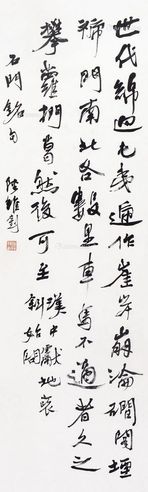 世代綿迴屯夷遞作崖岸崩淪磵閣堙
褫門南北各數里車馬不通者久之
攀蘿捫葛然後可至
漢中獻地褒
斜始開
石門銘句
陸維釗